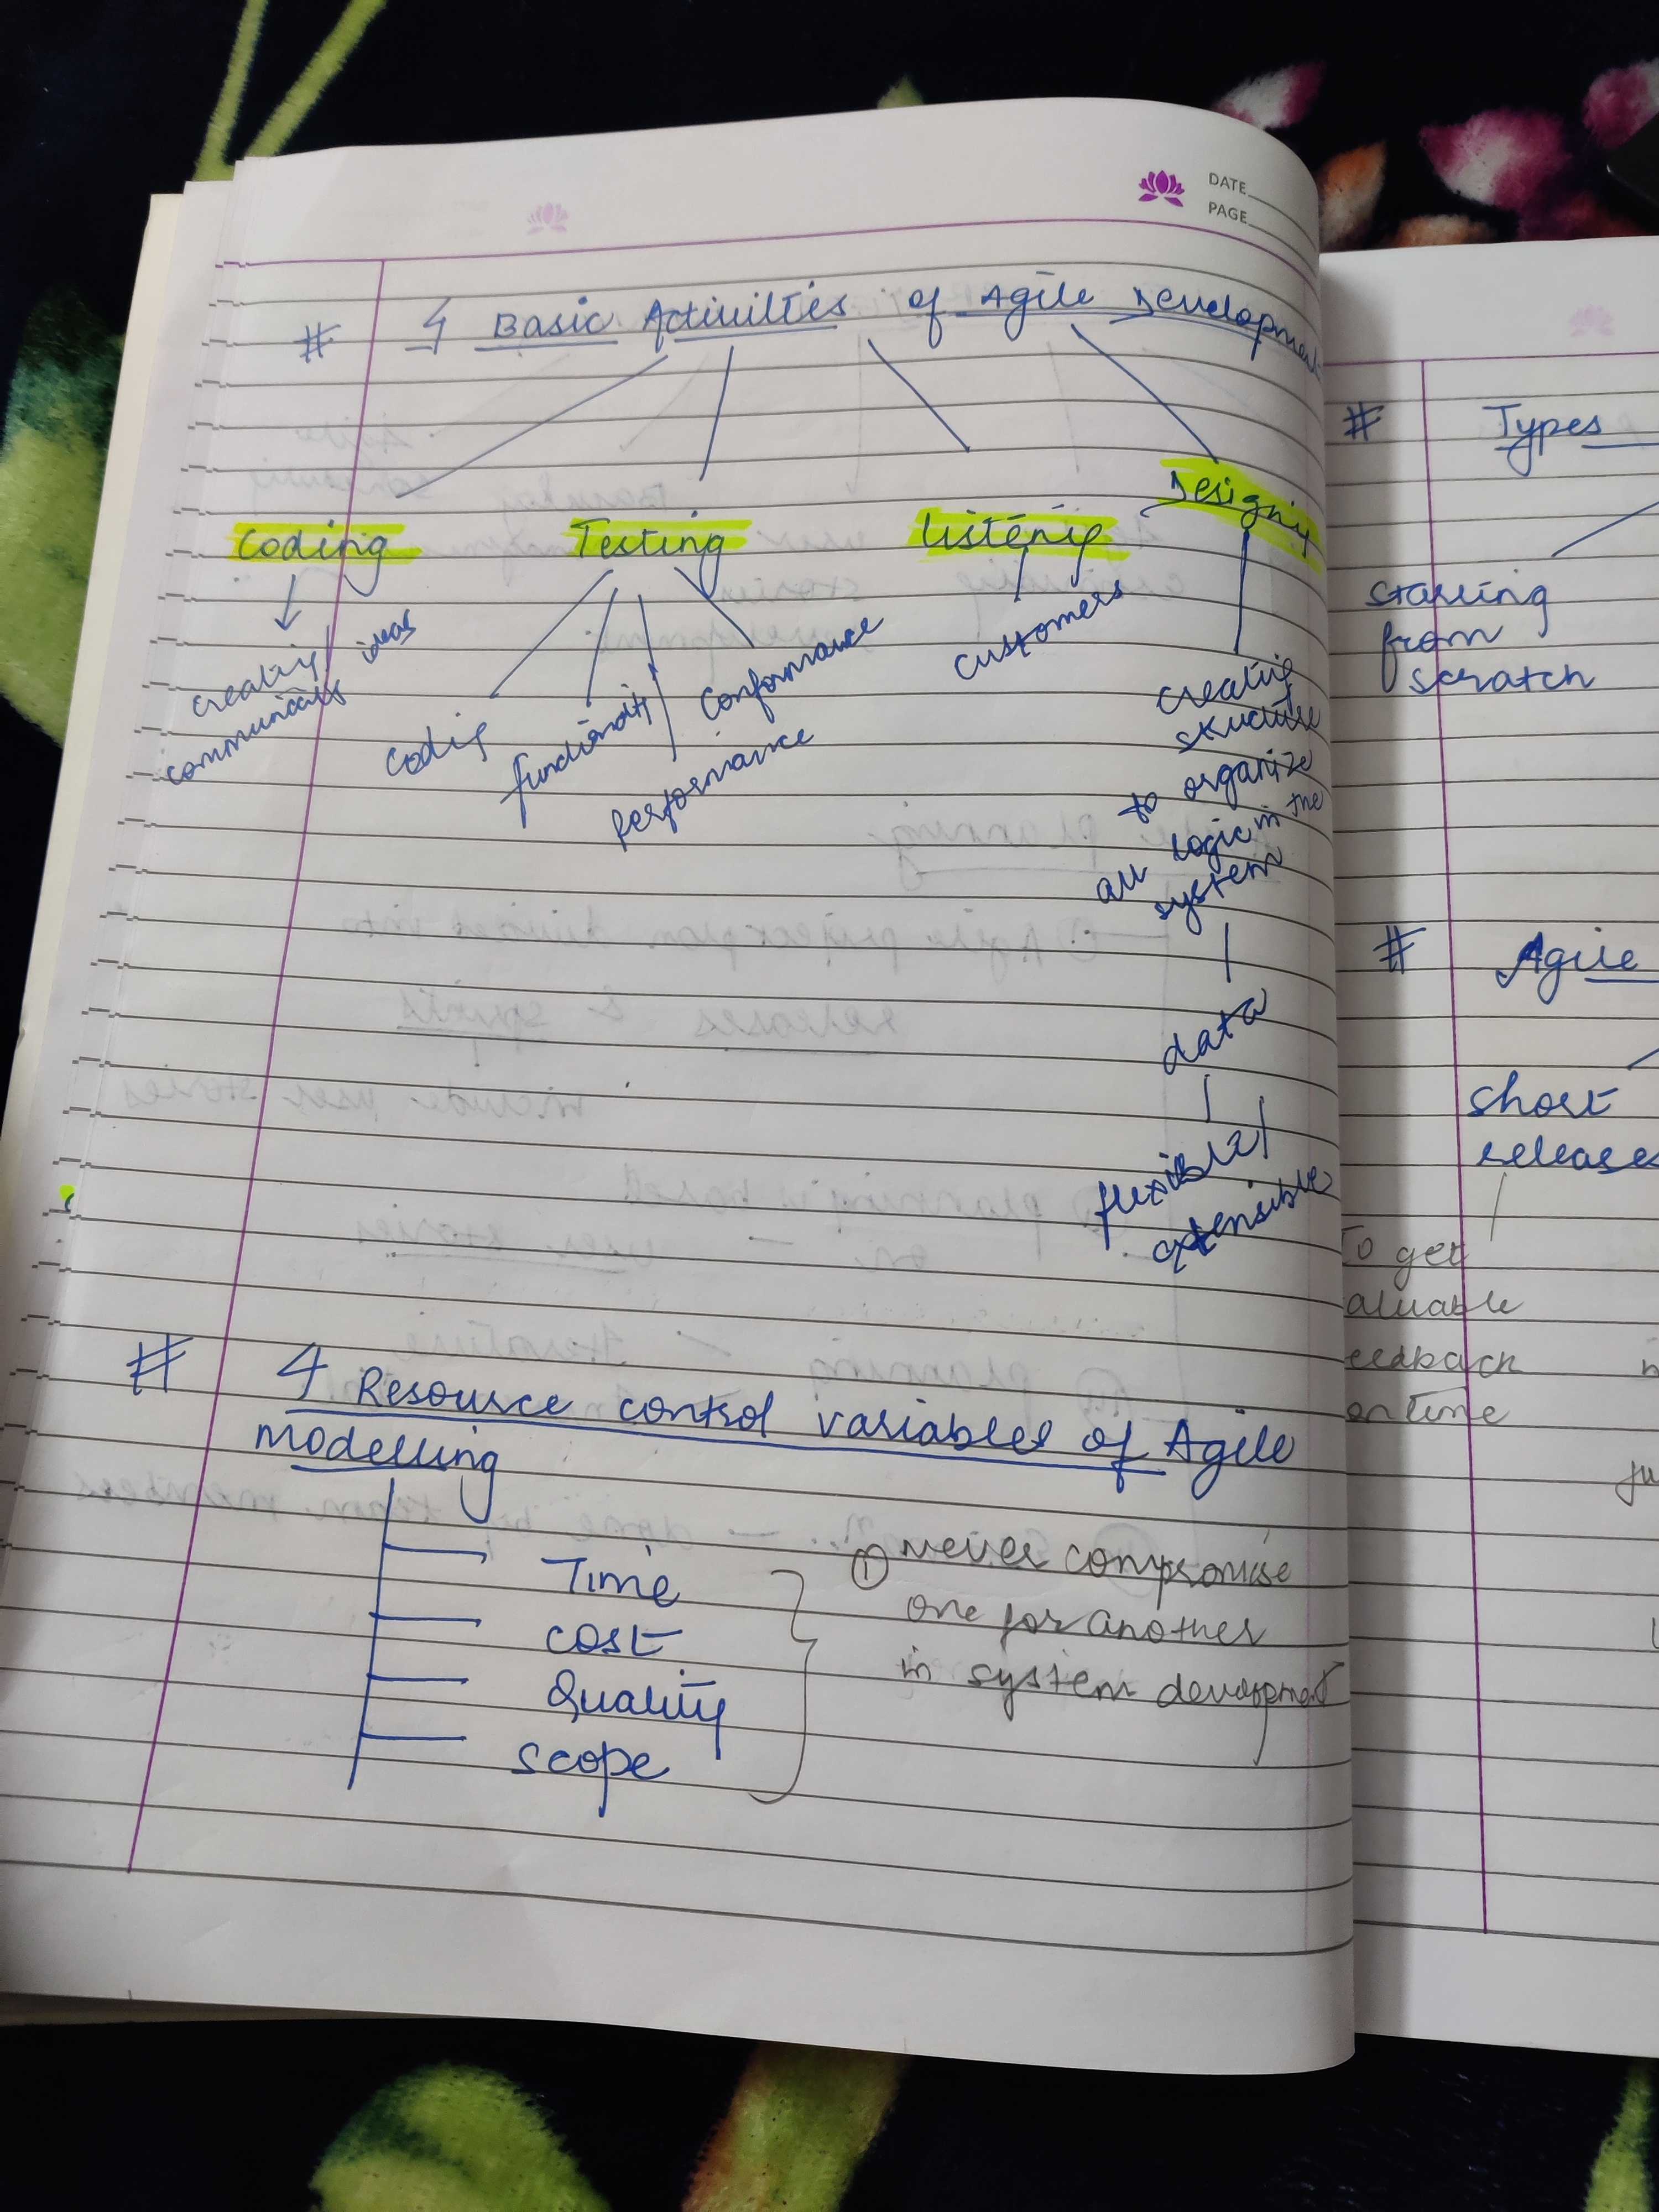 DATE
PAGE
# 4 Basic Activities of Agile Development
Coding
Testing
Listening
Designing
creating/ ideas
communicating
coding
functionality
performance
conformance
customers
creating
structure
to organize
all logic in the
system
data
flexible/
extensible
# 4 Resource control variables of Agile
modelling
Time
cost
Quality
scope
① never compromise
one for another
in system development
# Types
starting
from
scratch
# Agile
short
releases
To get
aluable
eedback
on time